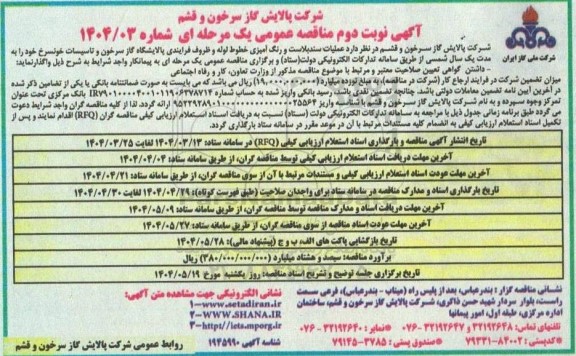 شرکت پالایش گاز سرخون و قشم
آگهی نوبت دوم مناقصه عمومی یک مرحله ای شماره ۱۴۰۴/۰۳
شرکت ملی گاز ایران
شرکت پالایش گاز سرخون و قشم در نظر دارد عملیات سندبلاست و رنگ آمیزی خطوط لوله و ظروف فرایندی پالایشگاه گاز سرخون و تاسیسات خونسرخ خود را به
مدت یک سال شمسی از طریق سامانه تدارکات الکترونیکی دولت (ستاد) و برگزاری مناقصه عمومی یک مرحله ای به پیمانکار واجد شرایط به شرح ذیل واگذار نماید:
- داشتن گواهی تعیین صلاحیت معتبر و مرتبط با موضوع مناقصه مذکور از وزارت تعاون، کار و رفاه اجتماعی
میزان تضمین شرکت در فرایند ارجاع کار (شرکت در مناقصه) به مبلغ نوزده میلیارد (۱۹/۰۰۰/۰۰۰/۰۰۰) ریال می باشد که می بایست به صورت ضمانتنامه بانکی یا یکی از تضامین ذکر شده
در آخرین آیین نامه تضمین معاملات دولتی باشد. چنانچه تضمین نقدی باشد، رسید بانکی واریز شده به حساب شماره بانک مرکزی تحت عنوان
تمرکز وجوه سپرده و به نام شرکت پالایش گاز سرخون و قشم با شناسه واریز ارائه گردد. لذا از کلیه مناقصه گران واجد شرایط دعوت
می گردد طبق برنامه زمانی جدول ذیل با مراجعه به سامانه تدارکات الکترونیکی دولت (ستاد) نسبت به دریافت اسناد استعلام ارزیابی کیفی مناقصه گران (RFQ) اقدام نمایند و پس از
تکمیل اسناد استعلام ارزیابی کیفی به انضمام کلیه مستندات مرتبط با آن در موعد مقرر در سامانه ستاد بارگذاری گردد.
تاریخ انتشار آگهی مناقصه و بارگذاری اسناد استعلام ارزیابی کیفی (RFQ) در سامانه ستاد: ۱۴۰۴/۰۳/۱۳ لغایت ۱۴۰۴/۰۳/۲۵
آخرین مهلت دریافت اسناد استعلام ارزیابی کیفی توسط مناقصه گران، از طریق سامانه ستاد: ۱۴۰۴/۰۴/۰۴
آخرین مهلت عودت اسناد استعلام ارزیابی کیفی و مستندات مرتبط با آن از سوی مناقصه گران، از طریق سامانه ستاد: ۱۴۰۴/۰۴/۲۱
تاریخ بارگذاری اسناد و مدارک مناقصه در سامانه ستاد برای واجدان صلاحیت (طبق فهرست کوتاه): ۱۴۰۴/۰۴/۲۹ لغایت ۱۴۰۴/۰۴/۳۰
آخرین مهلت دریافت اسناد و مدارک مناقصه توسط مناقصه گران، از طریق سامانه ستاد: ۱۴۰۴/۰۵/۰۹
آخرین مهلت عودت اسناد مناقصه از سوی مناقصه گران، از طریق سامانه ستاد: ۱۴۰۴/۰۵/۲۷
تاریخ بازگشایی پاکت های الف، ب و ج (پیشنهاد مالی): ۱۴۰۴/۰۵/۲۸
برآورد مناقصه: سیصد و هشتاد میلیارد (۳۸۰/۰۰۰/۰۰۰/۰۰۰) ریال
تاریخ برگزاری جلسه توضیح و تشریح اسناد مناقصه: روز یکشنبه مورخ ۱۴۰۴/۰۵/۱۹
نشانی مناقصه گزار: بندرعباس، بعد از پلیس راه (میناب - بندرعباس)، فرعی سمت
راست، بلوار سردار شهید حسن ذاکری، شرکت پالایش گاز سرخون و قشم، ساختمان
اداره مرکزی، طبقه اول، امور پیمانها
تلفنهای تماس: ۳۲۱۹۲۶۴۸ و ۳۲۱۹۲۶۴۷-۰۷۶ نمابر: ۳۲۱۹۲۶۴۰-۰۷۶
کدپستی: ۸۴۰۰۲-۷۹۳۳۱ صندوق پستی: ۳۷۸۵-۷۹۱۴۵
نشانی الکترونیکی جهت مشاهده متن آگهی:
1-www.setadiran.ir
2-WWW.SHANA.IR
3-http//iets.mporg.ir
شناسه آگهی ۱۹۴۵۹۹۰
روابط عمومی شرکت پالایش گاز سرخون و قشم